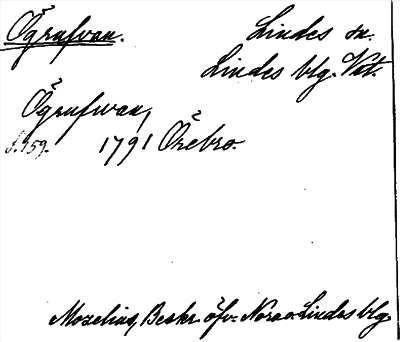 Ögrufvan. Lindes sn.
Lindes blg. Vstm.
Ögrufwan,
s. 159. 1791 Örebro.
Mozelius, Beskr. öfv. Nora o. Lindes blg.